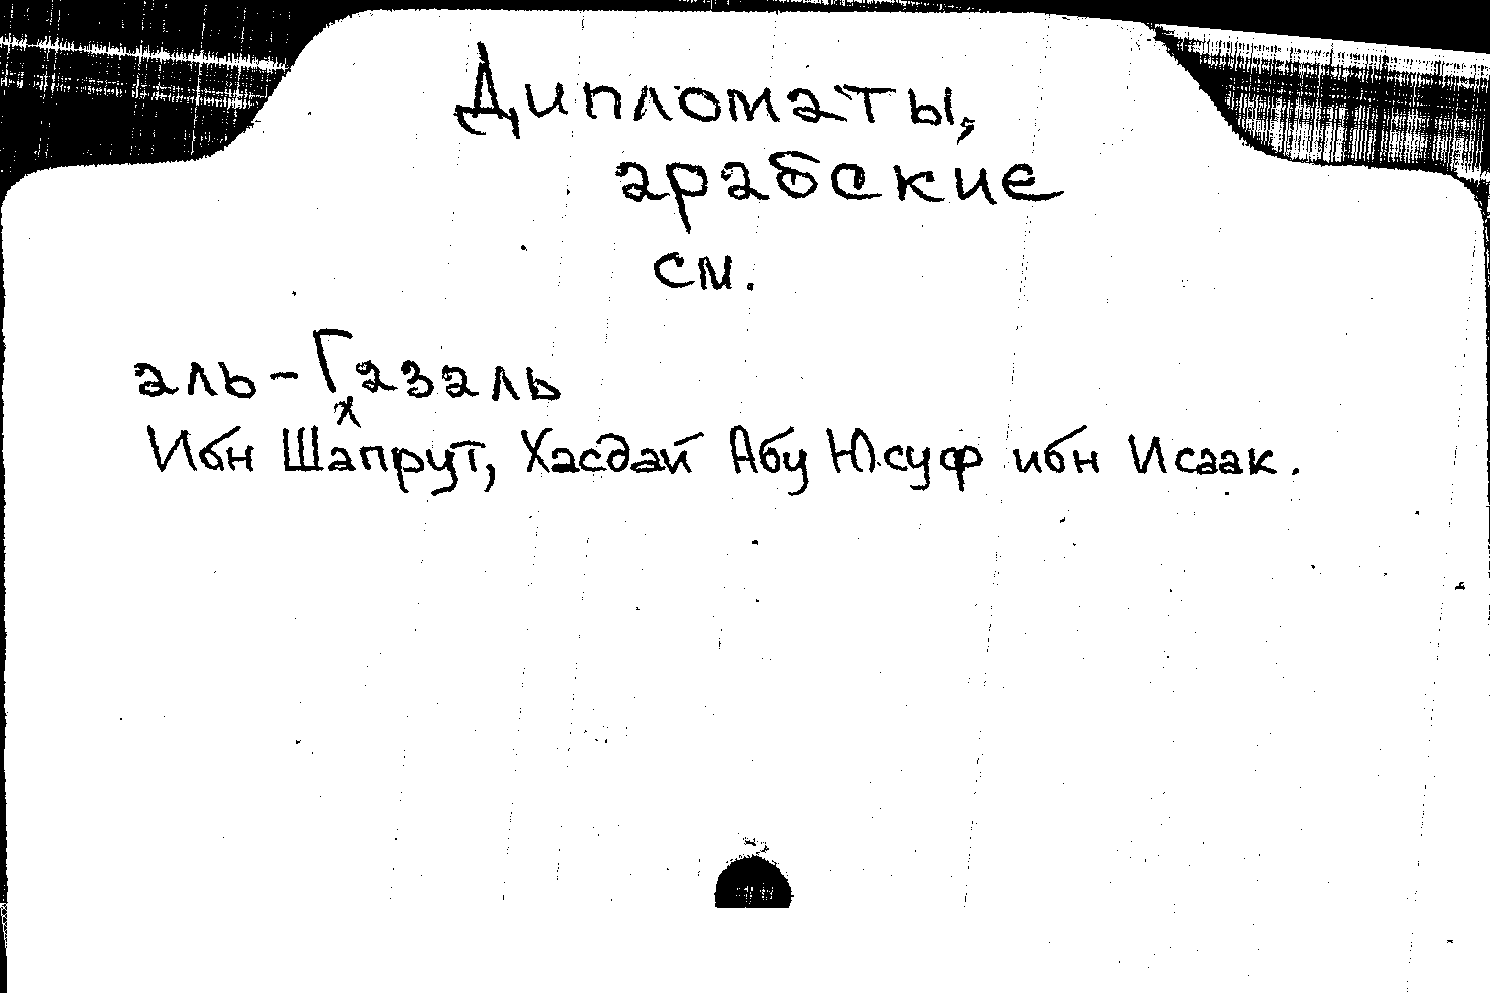 Дипломаты,
арабские
см.
аль-Газаль
х
Ибн Шапрут, Хасдай Абу Юсуф ибн Исаак.